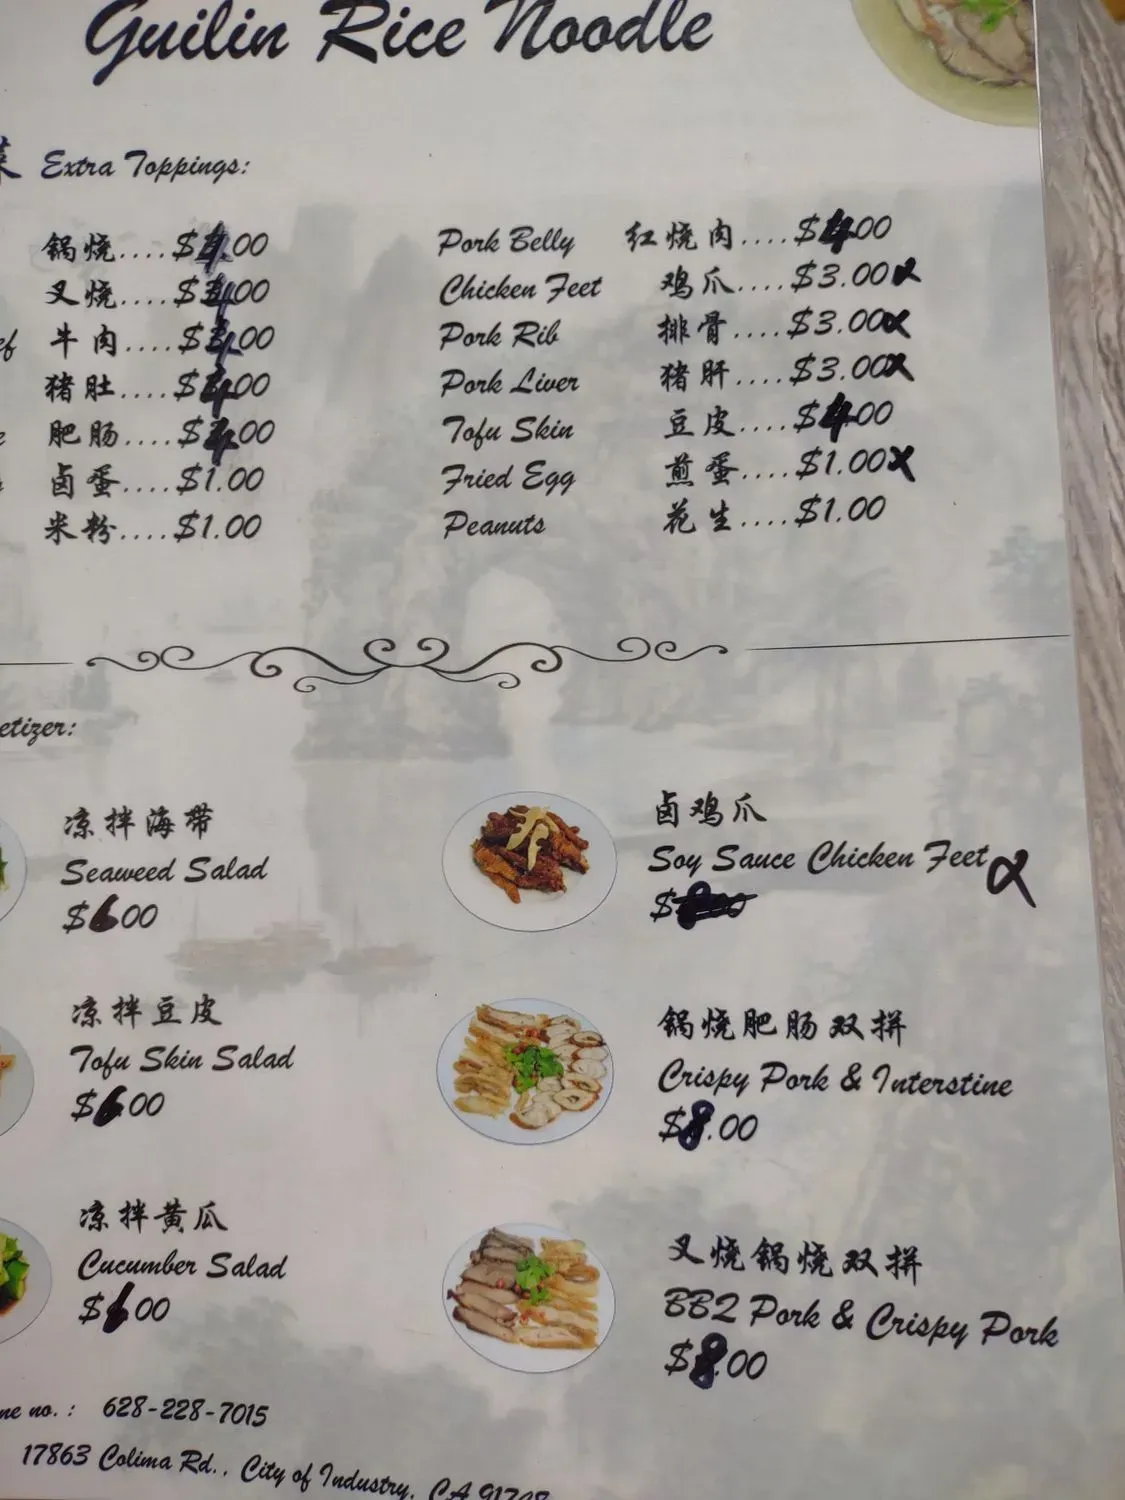 Guilin Rice Noodle
菜 Extra Toppings:
锅烧....$4.00
叉烧....$4.00
牛肉....$4.00
猪肚....$4.00
肥肠....$4.00
卤蛋....$1.00
米粉....$1.00
Pork Belly 红烧肉....$4.00
Chicken Feet 鸡爪....$3.00 x
Pork Rib 排骨....$3.00 x
Pork Liver 猪肝....$3.00 x
Tofu Skin 豆皮....$4.00
Fried Egg 煎蛋....$1.00 x
Peanuts 花生....$1.00
etizer:
凉拌海带
Seaweed Salad
$6.00
凉拌豆皮
Tofu Skin Salad
$6.00
凉拌黄瓜
Cucumber Salad
$6.00
卤鸡爪
Soy Sauce Chicken Feet x
$8.00
锅烧肥肠双拼
Crispy Pork & Interstine
$8.00
叉烧锅烧双拼
BBQ Pork & Crispy Pork
$8.00
ne no. : 628-228-7015
17863 Colima Rd., City of Industry, CA 91748